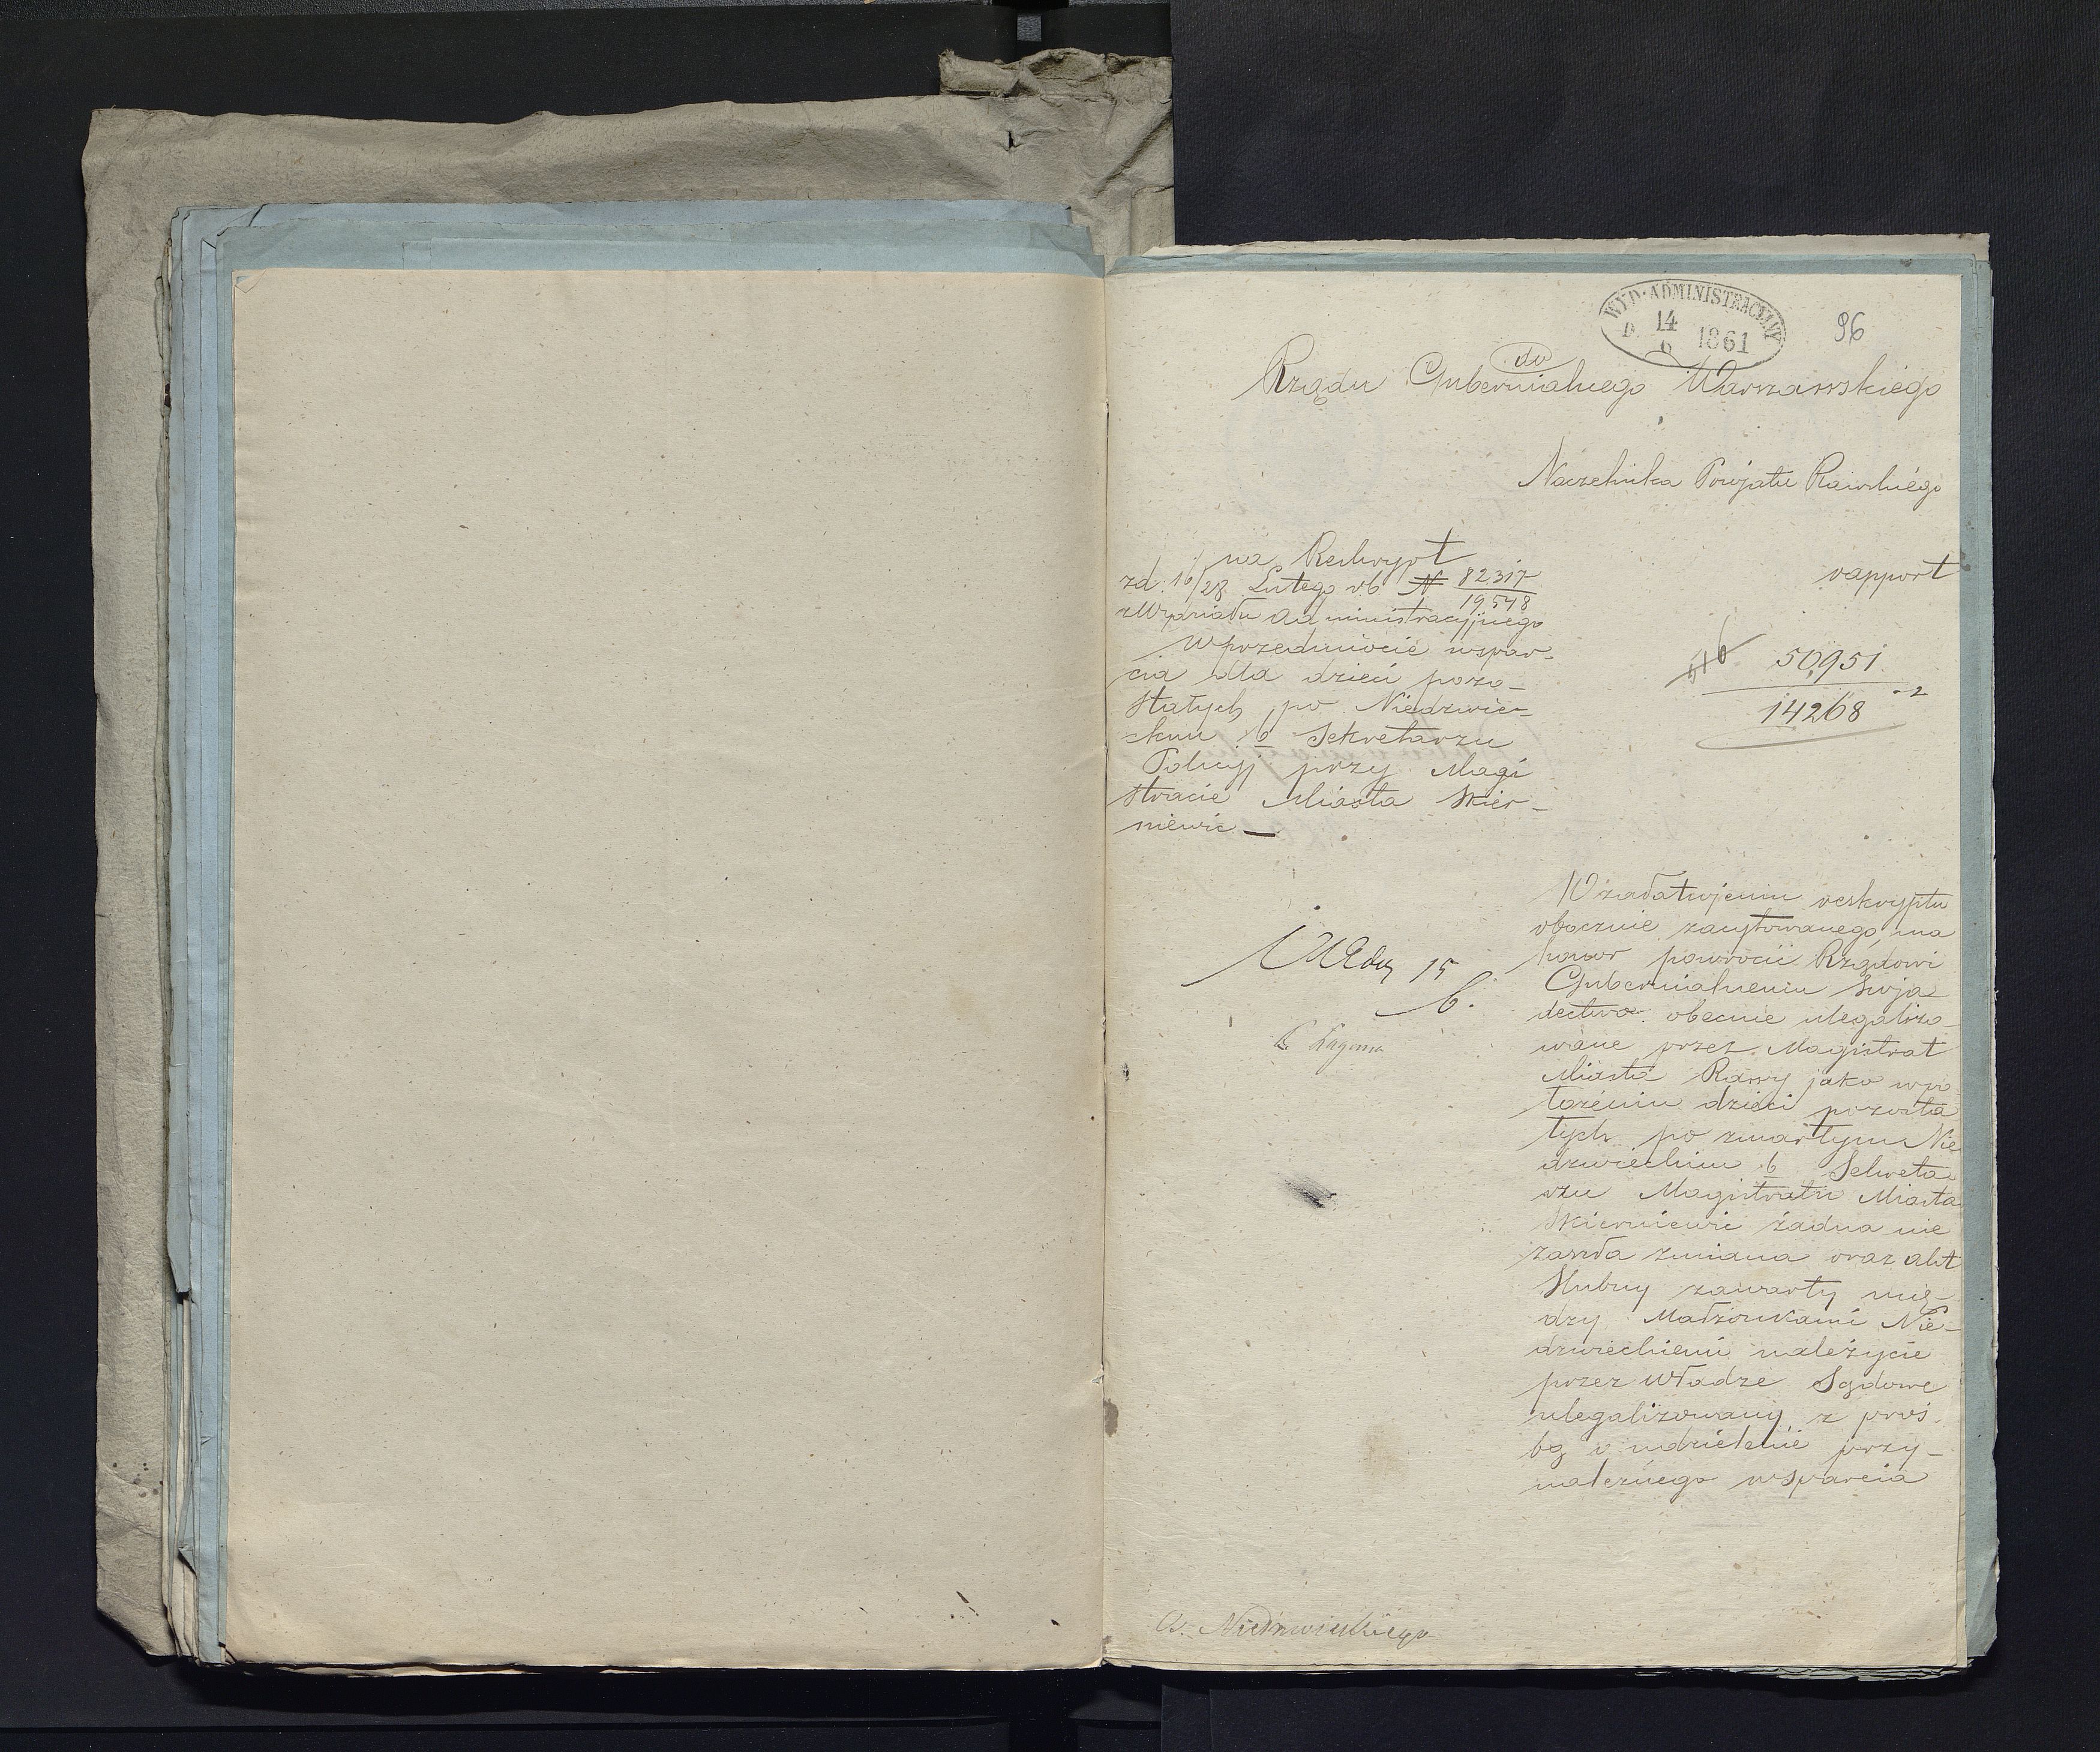 WYD. ADMINISTRACYJNY
D. 14/6 1861
96
do
Rządu Gubernialnego Warszawskiego
Naczelnika Powjatu Rawskiégo
rapport
na Reskrypt
zd: 16/28 Lutego rb N 82317/19548
z Wydziału Administracyjnego
w przedmiocie wspar-
cia dla dzieci pozo-
stałych po Niedzwie-
ckim b Sekretarzu
Policyj przy Magi
stracie Miasta Skier-
niewic —
50951
14268 -2
15
6.
W załatwjeniu reskryptu
obocznie zacytowanego, ma
honor powrócić Rządowi
Gubernialnemu swja-
dectwo obecnie ulegalizo-
wane przez Magistrat
Miasta Rawy jako w po
łożeniu dzieci pozosta
łych po zmarłym Nie
dzwieckim b Sekreta-
rzu Magistratu Miasta
Skierniewic żadna nie
zaszła zmiana oraz akt
slubny zawarty mię-
dzy Małżonkami Nie-
dzwieckiemi należycie
przez Władze Sądowe
ulegalizowany, z proś
bą o udzielenie przy-
należnego wsparcia
As. Niedzwieckiego